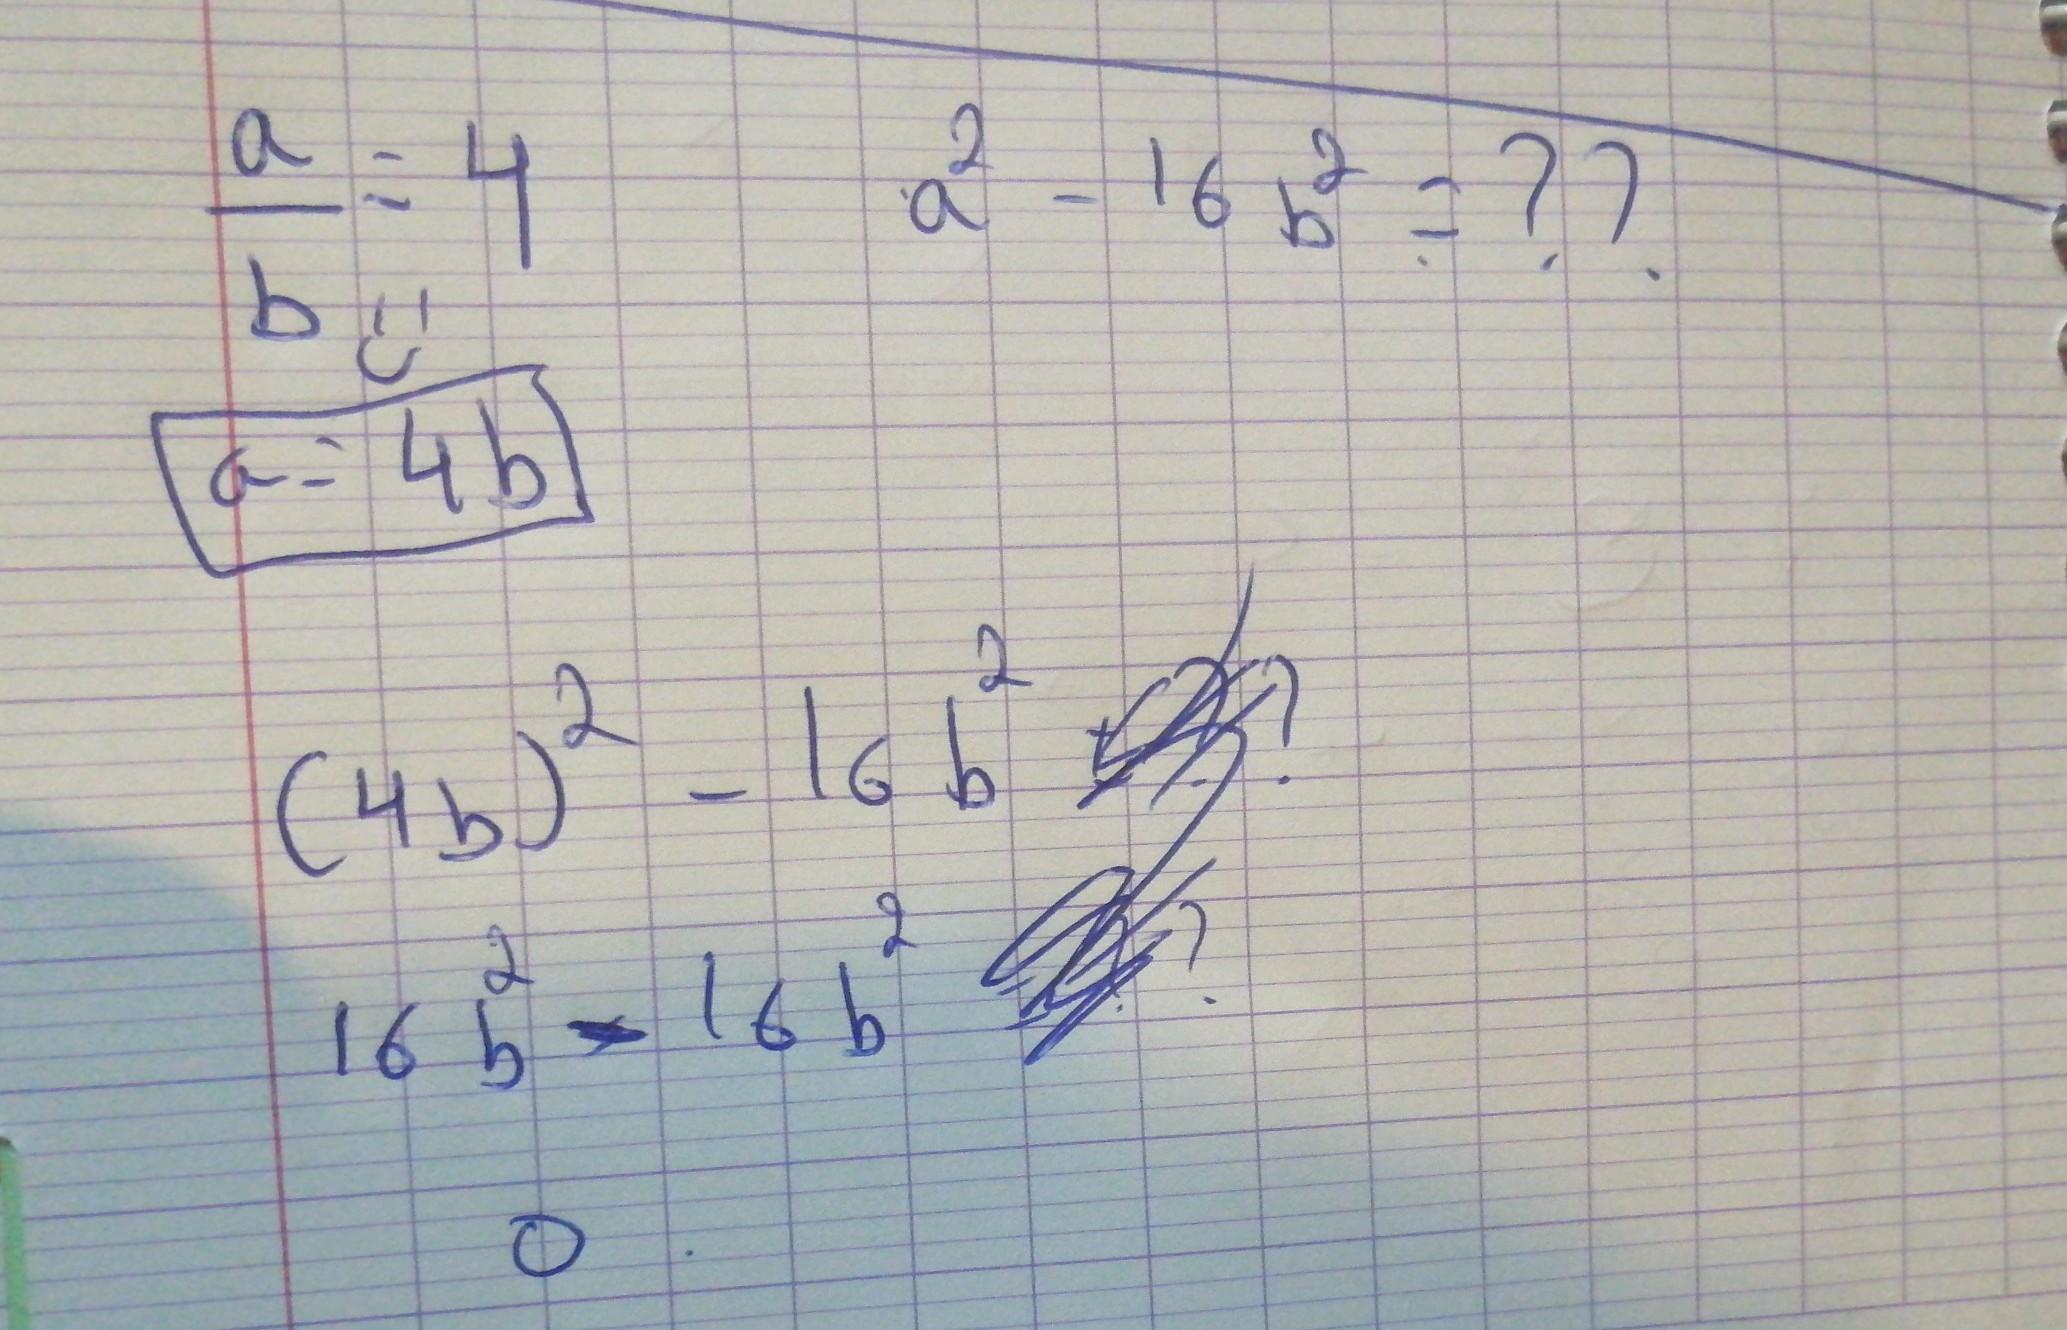 a/b = 4
a² - 16 b² = ??
a = 4b
(4b)² - 16 b² ?
16 b² - 16 b² ?
0